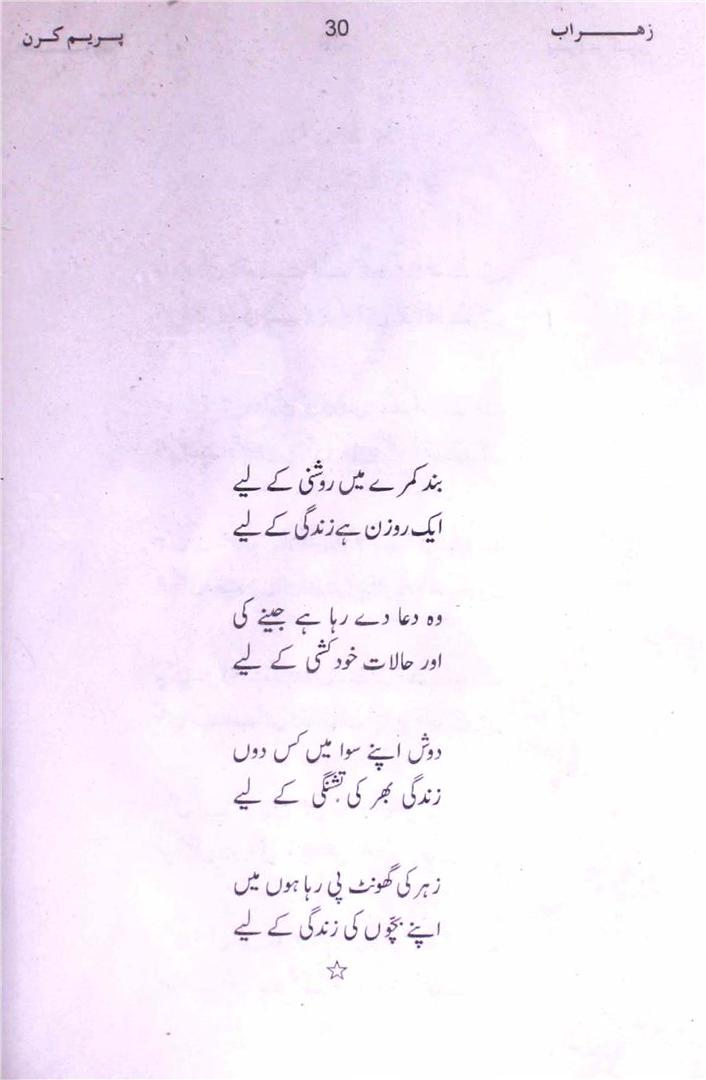 زہراب 30 پریم کرن
بند کمرے میں روشنی کے لیے
ایک روزن ہے زندگی کے لیے
وہ دعا دے رہا ہے جینے کی
اور حالات خودکشی کے لیے
دوش اپنے سوا میں کس دوں
زندگی بھر کی تشنگی کے لیے
زہر کی گھونٹ پی رہا ہوں میں
اپنے بچّوں کی زندگی کے لیے
☆